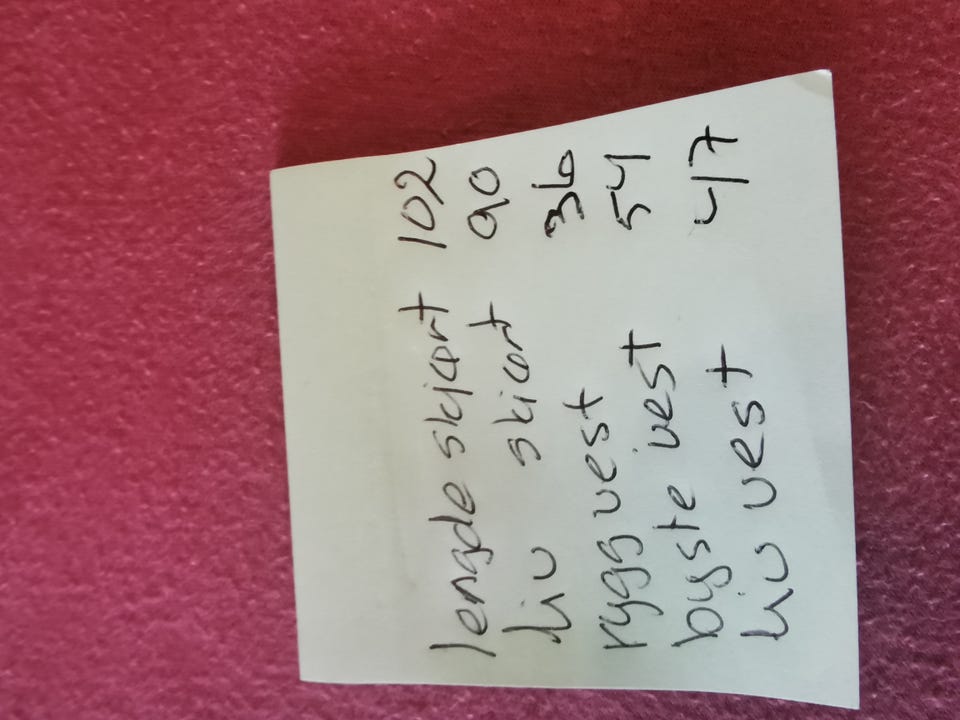 lengde skjørt 102
liv skjørt 90
rygg vest 36
byste vest 54
liv vest 47